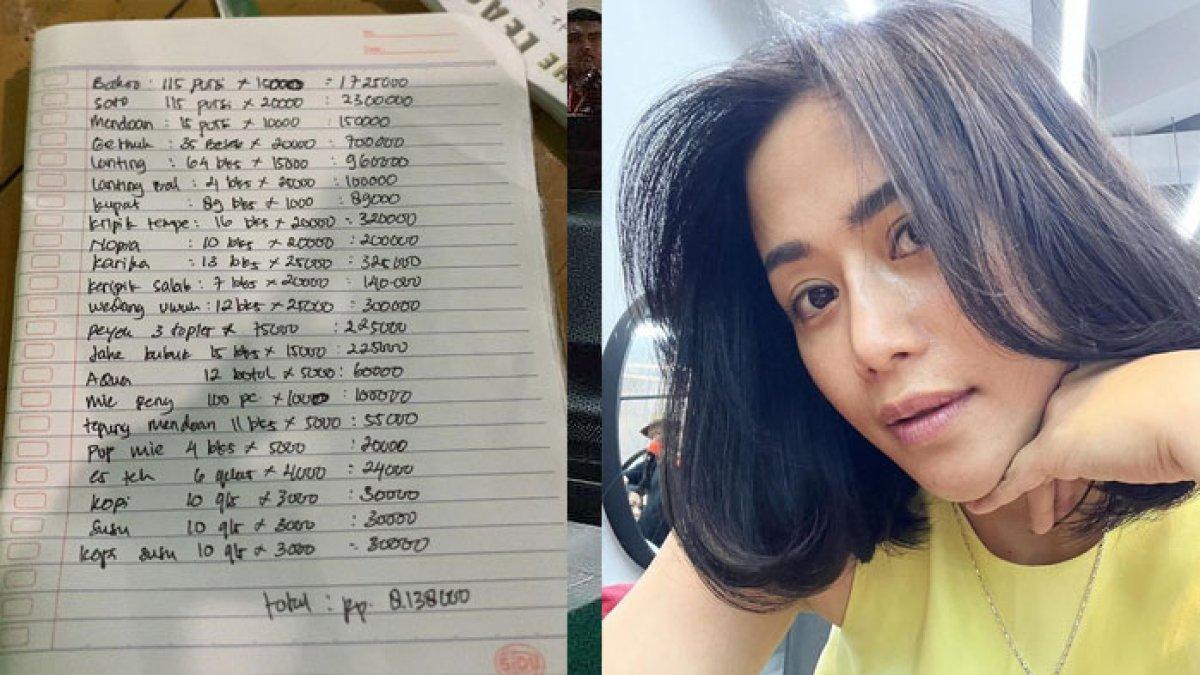 THE LEAG
Bakso : 115 porsi × 15000 : 1725000
Soto 115 porsi × 20000 : 2300000
Mendoan : 15 porsi × 10000 : 150000
Gethuk : 35 × 20000 : 700000
Lanting : 64 bks × 15000 : 960000
Lanting : 4 bks × 25000 : 100000
kupat : 89 bks × 1000 : 89000
kripik tempe : 16 bks × 20000 : 320000
Nopia : 10 bks × 20000 : 200000
karika : 13 bks × 25000 : 325000
keripik salak : 7 bks × 20000 : 140.000
wedang uwuh : 12 bks × 25000 : 300000
peyek 3 toples × 75000 : 225000
Jahe bubuk 15 bks × 15000 : 225000
Aqua 12 botol × 5000 : 60000
mie 100 pc × 1000 : 100000
tepung mendoan 11 bks × 5000 : 55000
pop mie 4 bks × 5000 : 20000
es teh 6 gelas × 4000 : 24000
kopi 10 gls × 3000 : 30000
susu 10 gls × 3000 : 30000
kopi susu 10 gls × 3000 : 30000
total : Rp. 8.138000
SiDU